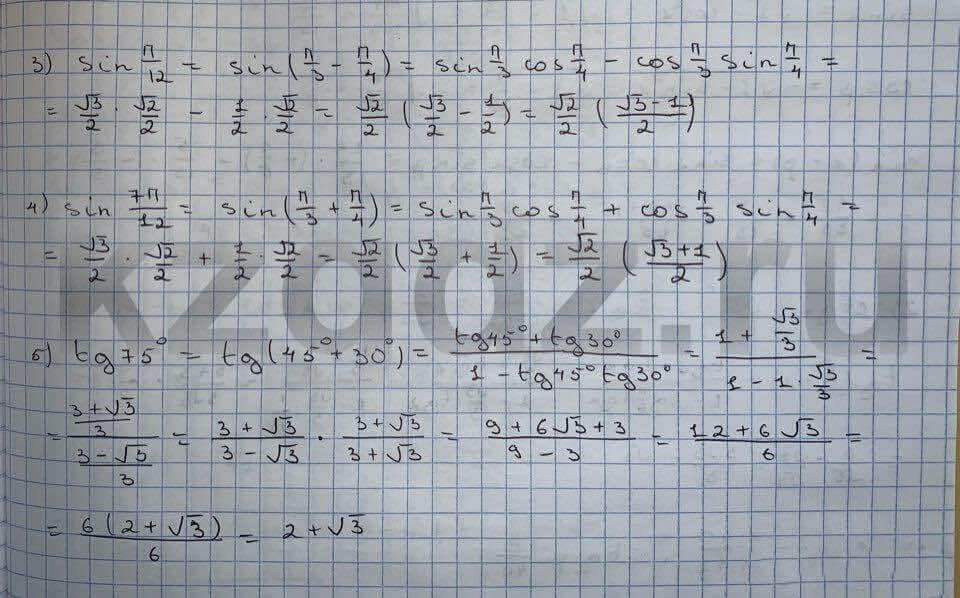 3) sin π/12 = sin(π/3 - π/4) = sin π/3 cos π/4 - cos π/3 sin π/4 =
= √3/2 · √2/2 - 1/2 · √2/2 = √2/2 (√3/2 - 1/2) = √2/2 (√3-1/2)
4) sin 7π/12 = sin(π/3 + π/4) = sin π/3 cos π/4 + cos π/3 sin π/4 =
= √3/2 · √2/2 + 1/2 · √2/2 = √2/2 (√3/2 + 1/2) = √2/2 (√3+1/2)
5) tg 75° = tg(45° + 30°) = tg45° + tg30° / 1 - tg45° tg30° = 1 + √3/3 / 1 - 1 · √3/3 =
= 3+√3/3 / 3-√3/3 = 3+√3/3-√3 · 3+√3/3+√3 = 9+6√3+3/9-3 = 12+6√3/6 =
= 6(2+√3)/6 = 2+√3
kzgdz.ru